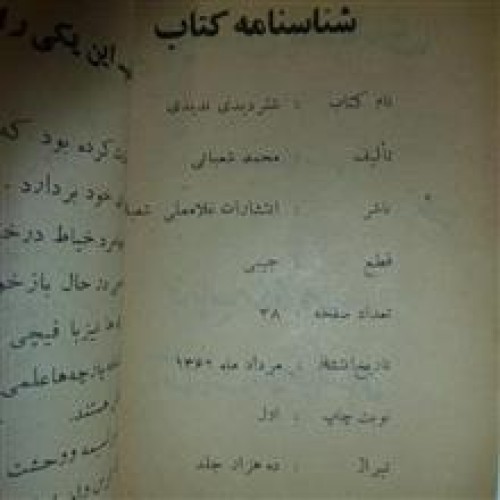 شناسنامه کتاب
نام کتاب : شتر دیدی ندیدی
تألیف : محمد شعبانی
ناشر : انتشارات غلامعلی شعبا
قطع : جیبی
تعداد صفحه : ۳۸
تاریخ انتشار : مرداد ماه ۱۳۶۰
نوبت چاپ : اول
تیراژ : ده هزار جلد
این یکی را
کرده بود که
خود بردارد .
خیاط درخ
در حال بازخو
نیز با قیچی
پارچه‌ها علمی
هستند .
وحشت